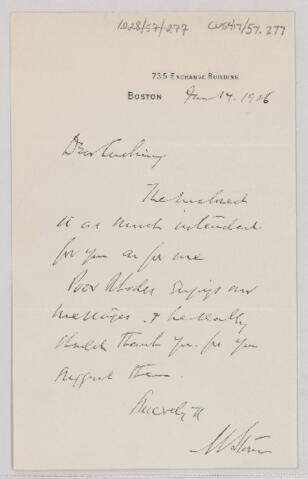 1028/57/277 CUS417/57.277
735 EXCHANGE BUILDING
BOSTON Jan 17. 1926
Dear Cushing
The Enclosed
is as much intended
for you as for me
Poor Rhodes enjoys our
messages & he really
should thank you for you
suggest them.
Sincerely